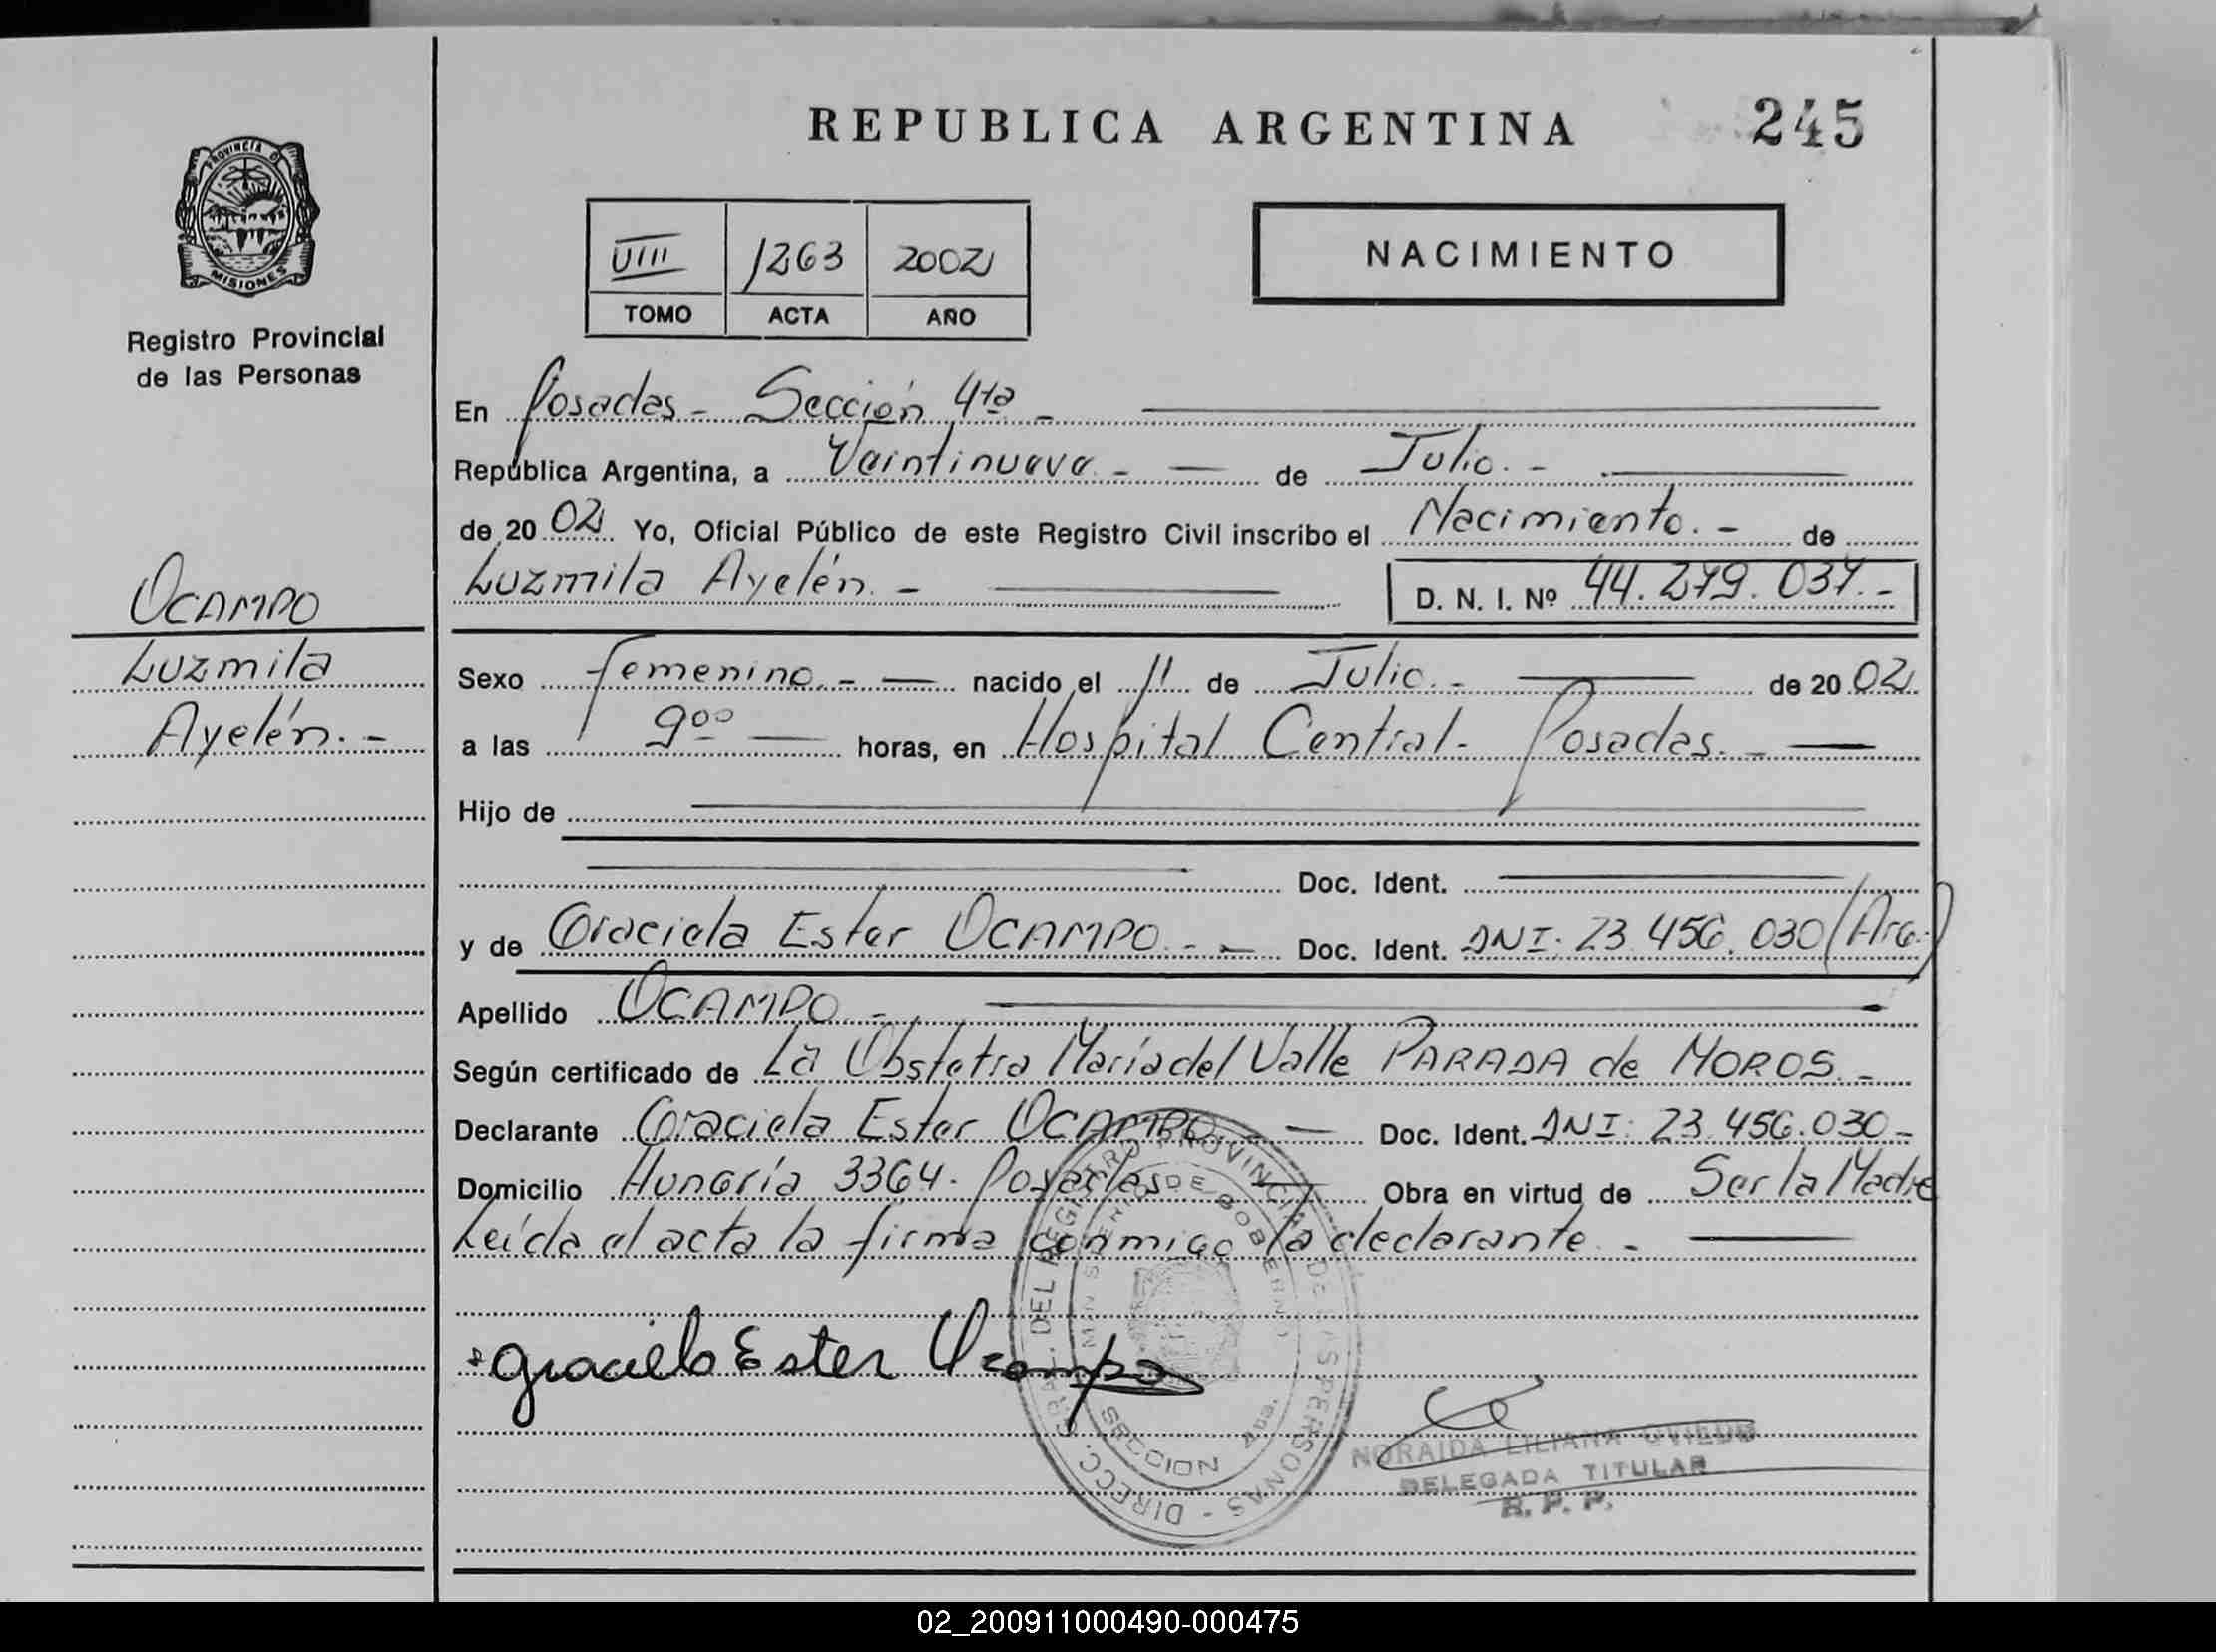 REPUBLICA ARGENTINA
245
PROVINCIA D
MISIONES
Registro Provincial
de las Personas
VIII 1263 2002
TOMO ACTA AÑO
NACIMIENTO
En Posadas - Sección 4ta -
República Argentina, a Veintinueve. - de Julio. -
de 20 02 Yo, Oficial Público de este Registro Civil inscribo el Nacimiento. - de
Luzmila Ayelén. - D. N. I. Nº 44.279.037.-
OCAMPO
Luzmila
Ayelén. -
Sexo femenino. - nacido el 11 de Julio. - de 20 02
a las 9⁰⁰ horas, en Hospital Central - Posadas. -
Hijo de
Doc. Ident.
y de Graciela Ester OCAMPO. - Doc. Ident. DNI: 23.456.030 (Arg.)
Apellido OCAMPO -
Según certificado de La Obstetra María del Valle PARADA de MOROS. -
Declarante Graciela Ester OCAMPO. - Doc. Ident. DNI: 23.456.030 -
Domicilio Hungría 3364. Posadas Obra en virtud de Ser la Madre
Leída el acta la firma conmigo la declarante. -
Graciela Ester Ocampo
DIRECC. GRAL. DEL REGISTRO PROVINCIAL DE LAS PERSONAS -
MINISTERIO DE GOBIERNO
SECCION 4ta.
NORAIDA LILIANA OVIEDO
DELEGADA TITULAR
R. P. P.
02_200911000490-000475